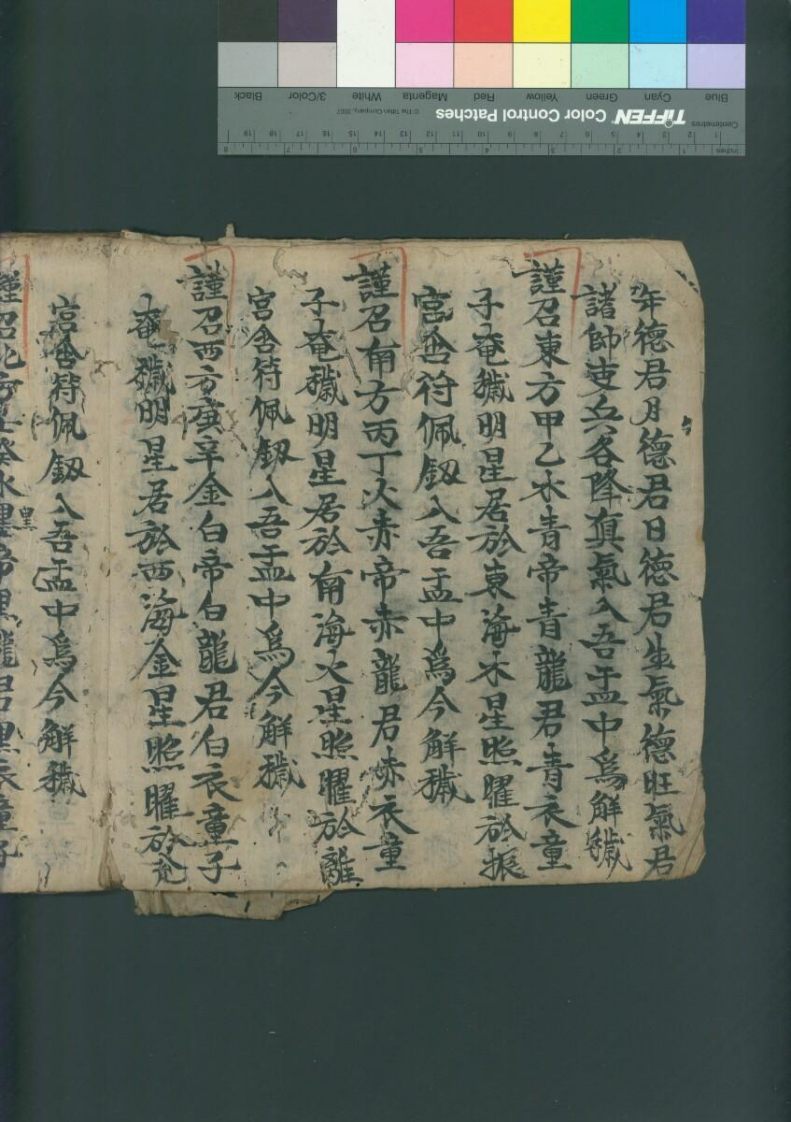 年德君月德君日德君生氣德旺氣君
諸帥吏兵各降真氣入吾盂中爲解穢
謹召東方甲乙木青帝青龍君青衣童
子奄穢明星居於東海木星照曜於振
宮含符佩釼入吾盂中爲今解穢
謹召南方丙丁火赤帝赤龍君赤衣童
子奄穢明星居於南海火星照曜於離
宮含符佩釼入吾盂中爲今解穢
謹召西方庚辛金白帝白龍君白衣童子
奄穢明星居於西海金星照曜於兊
宮含符佩釼入吾盂中爲今解穢
謹召北方壬癸水黑帝黑龍君黑衣童子
Blue Cyan Green Yellow Red Magenta White 3/Color Black
TIFFEN Color Control Patches © The Tiffen Company, 2007
Centimetres 1 2 3 4 5 6 7 8 9 10 11 12 13 14 15 16 17 18 19
Inches 1 2 3 4 5 6 7 8